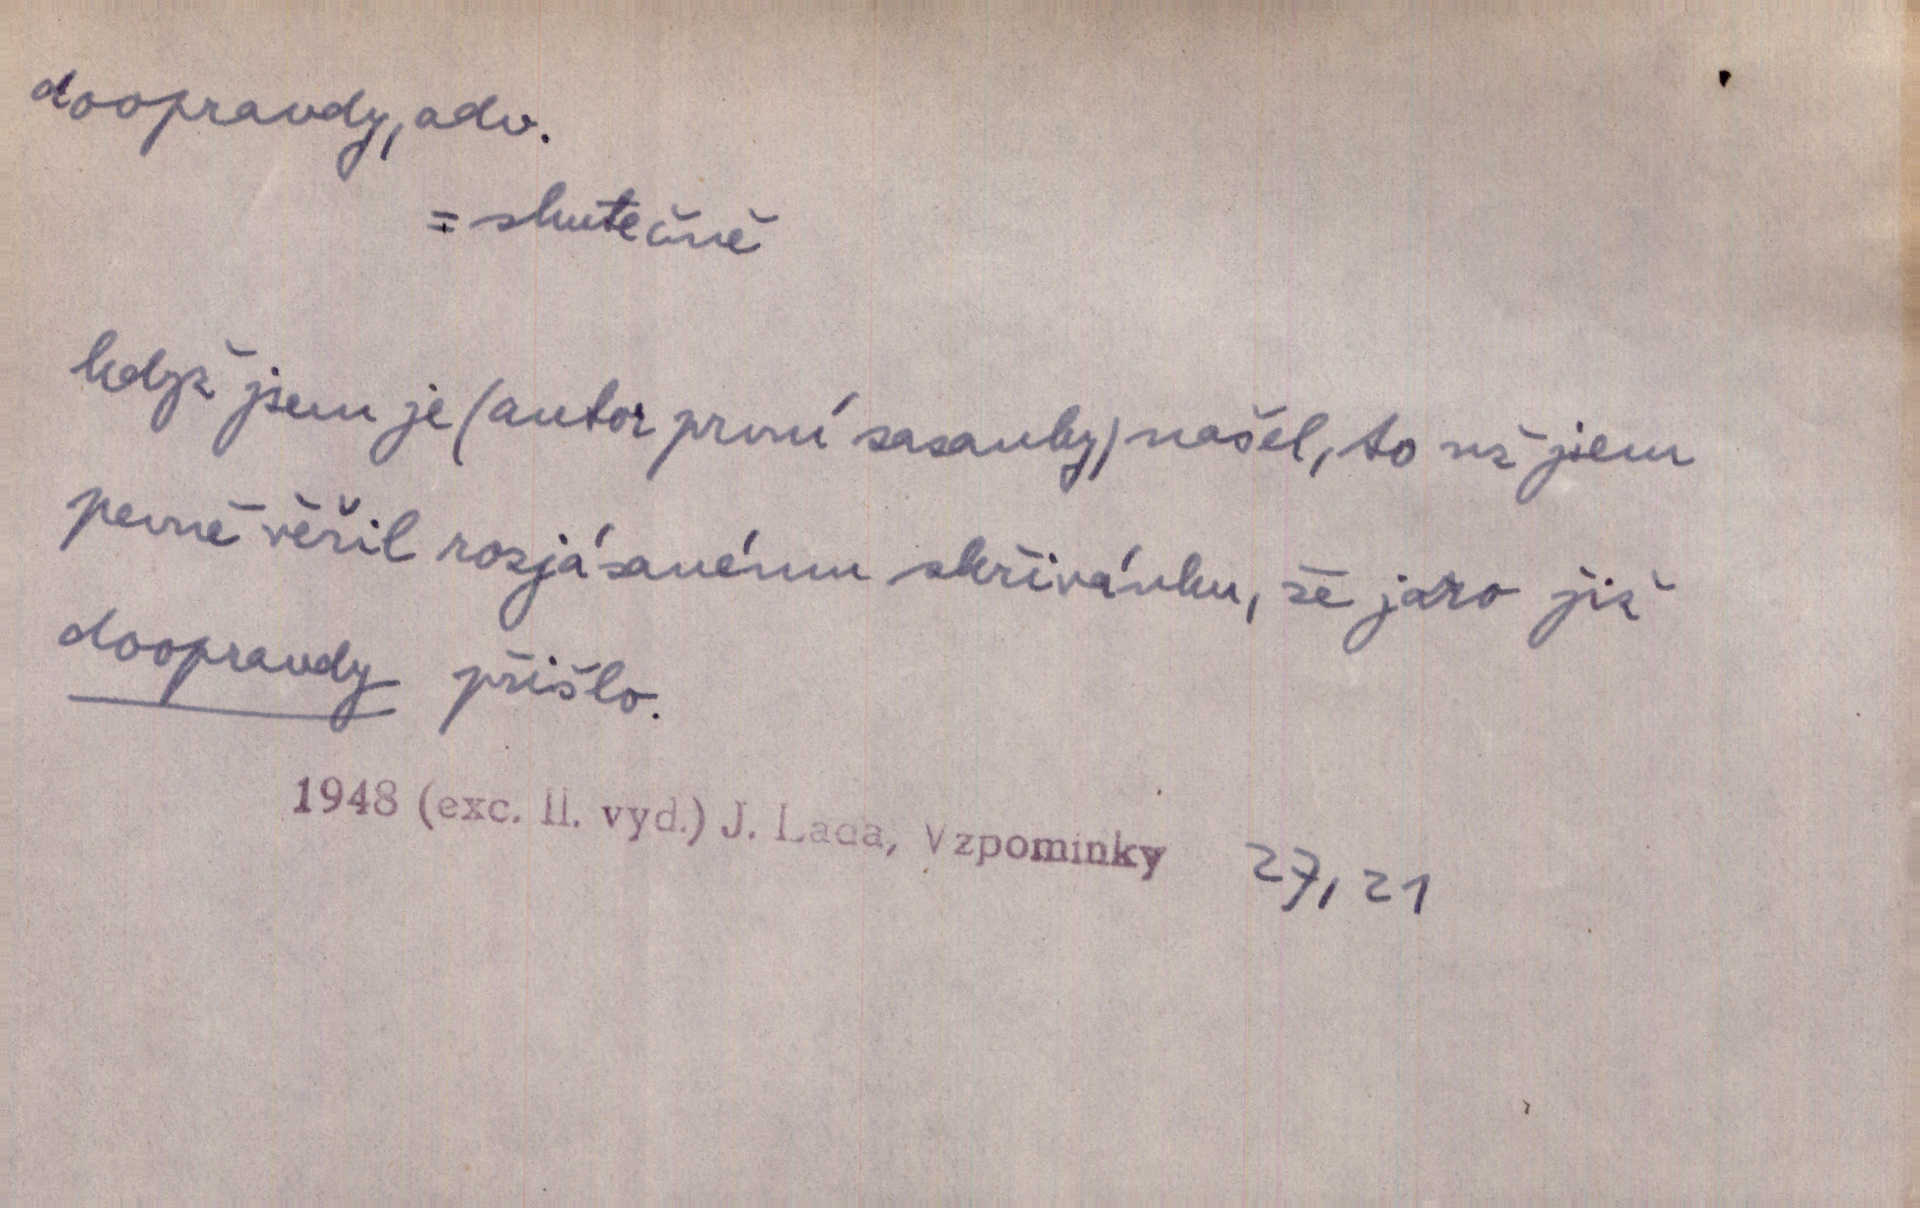 doopravdy, adv.
= skutečně
když jsem je (autor první sasanky) našel, to už jsem
pevně věřil rozjásanému skřivánku, že jaro již
doopravdy přišlo.
1948 (exc. II. vyd.) J. Lada, Vzpomínky 27, 21